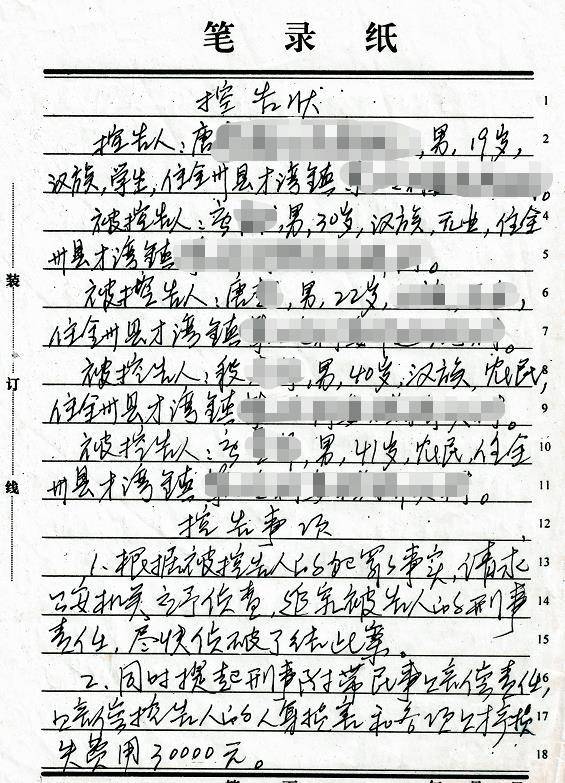 笔录纸
控告状 1
控告人:唐 ,男,19岁, 2
汉族,学生,住全州县才湾镇 。
被控告人:唐 ,男,30岁,汉族,无业,住全 4
州县才湾镇 。 5
被控告人:唐 ,男,22岁, , 6
住全州县才湾镇 。 7
被控告人: ,男,40岁,汉族,农民, 8
住全州县才湾镇 。 9
被控告人: ,男,41岁,农民,住全 10
州县才湾镇 。 11
控告事项 12
1、根据被控告人的犯罪事实,请求 13
公安机关立予侦查,追究被告人的刑事 14
责任,尽快侦破了结此案。 15
2、同时提起刑事附带民事赔偿责任, 16
赔偿控告人的人身损害和各项经济损 17
失费用30000元。 18
装
订
线